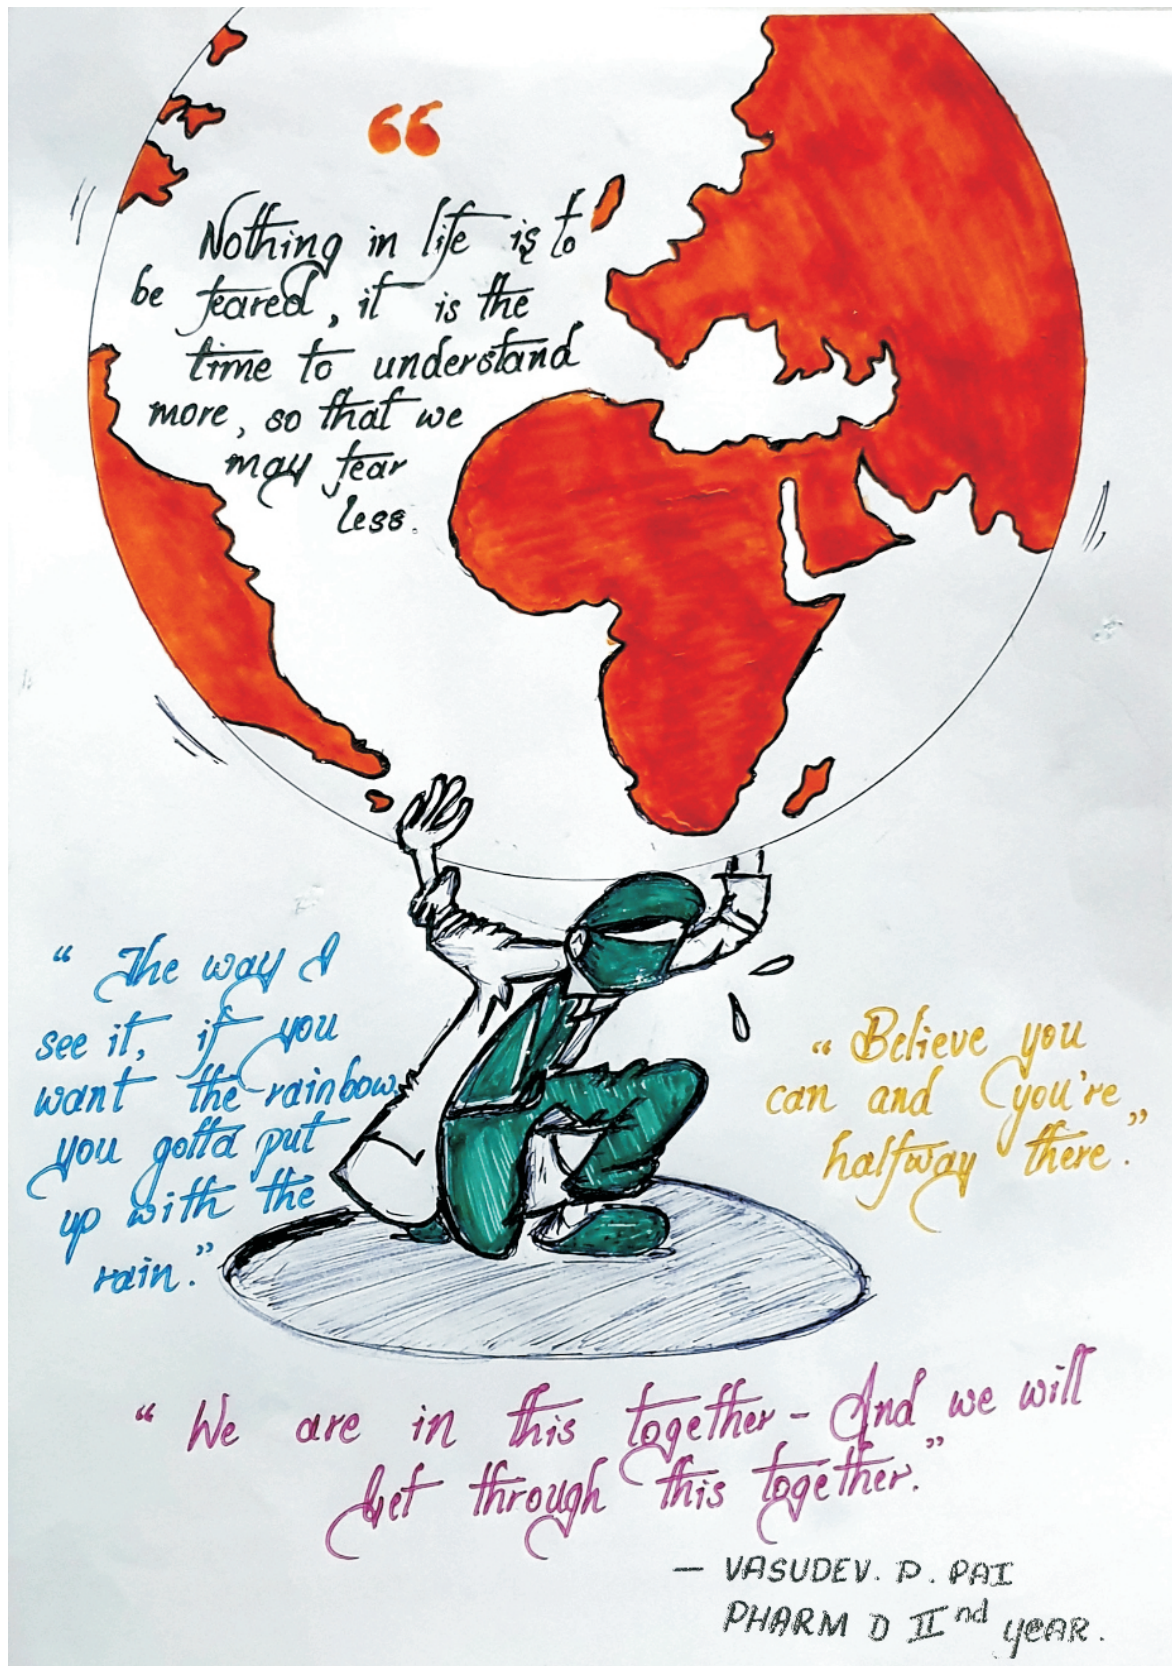 “
Nothing in life is to
be feared, it is the
time to understand
more, so that we
may fear
less.
“ The way I
see it, if you
want the rainbow,
you gotta put
up with the
rain.”
“ Believe you
can and you're
halfway there. ”
“ We are in this together – And we will
Get through this together.”
– VASUDEV. P. PAI
PHARM D II nd YEAR.